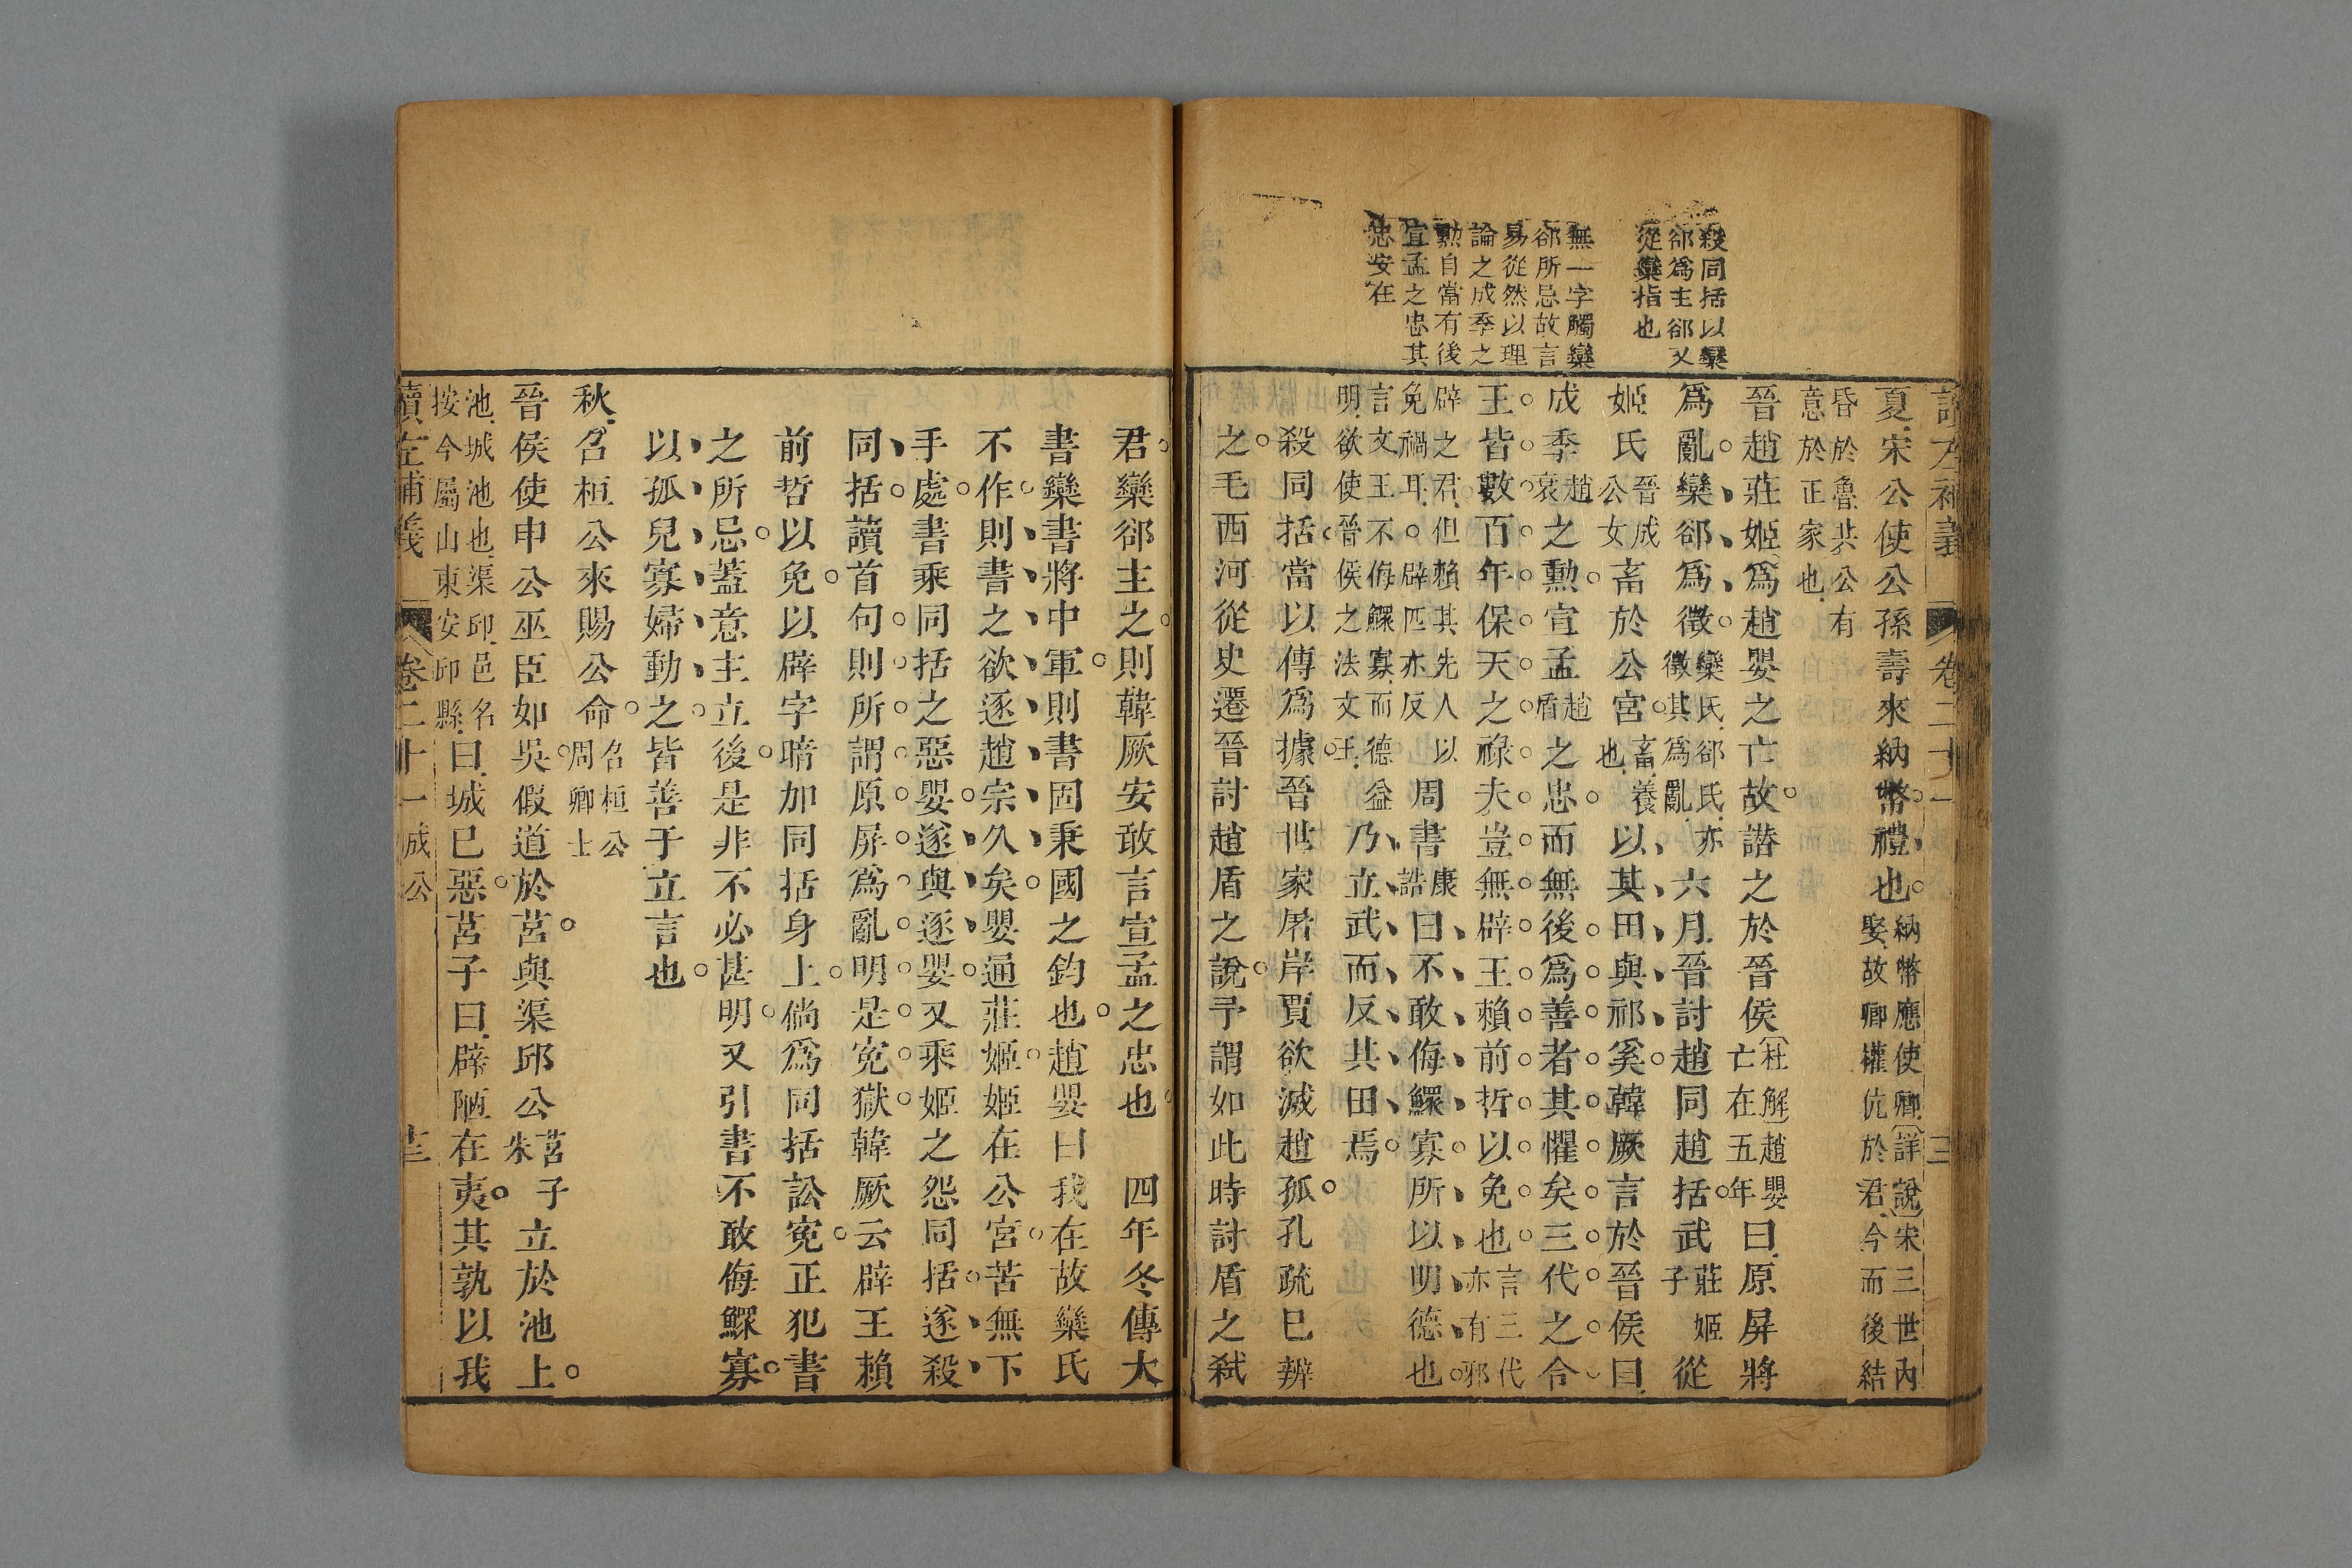 殺同括以欒
郤爲主郤又
從欒指也
無一字觸欒
郤所忌故言
易從然以理
論之成季之
勲自當有後
宣孟之忠其
忠安在
讀左補義 卷二十一
夏宋公使公孫壽來納幣禮也納幣應使卿詳說宋三世內娶故卿權伉於君今而後結
昏於魯共公有意於正家也
晉趙莊姬爲趙嬰之亡故譖之於晉侯杜解趙嬰亡在五年曰原屏將
爲亂欒郤爲徵欒氏郤氏亦徵其爲亂六月晉討趙同趙括武莊姬子從
姬氏晉成公女畜於公宮畜養也以其田與祁奚韓厥言於晉侯曰
成季趙衰之勲宣孟趙盾之忠而無後爲善者其懼矣三代之令
王皆數百年保天之祿夫豈無辟王賴前哲以免也言三代亦有邪
辟之君但賴其先人以免禍耳辟匹亦反周書康誥曰不敢侮鰥寡所以明德也
言文王不侮鰥寡而德益明欲使晉侯之法文王乃立武而反其田焉
殺同括當以傳爲據晉世家屠岸賈欲滅趙孤孔疏已辨
之毛西河從史遷晉討趙盾之說予謂如此時討盾之弒
君欒郤主之則韓厥安敢言宣孟之忠也 四年冬傳大
書欒書將中軍則書固秉國之鈞也趙嬰曰我在故欒氏
不作則書之欲逐趙宗久矣嬰通莊姬姬在公宮苦無下
手處書乘同括之惡嬰遂與逐嬰又乘姬之怨同括遂殺
同括讀首句則所謂原屏爲亂明是寃獄韓厥云辟王賴
前哲以免以辟字暗加同括身上倘爲同括訟寃正犯書
之所忌蓋意主立後是非不必甚明又引書不敢侮鰥寡
以孤兒寡婦動之皆善于立言也
秋召桓公來賜公命召桓公周卿士
晉侯使申公巫臣如吳假道於莒與渠邱公莒子朱立於池上
池城池也渠邱邑名按今屬山東安邱縣曰城已惡莒子曰辟陋在夷其孰以我
讀左補義 卷二十一成公